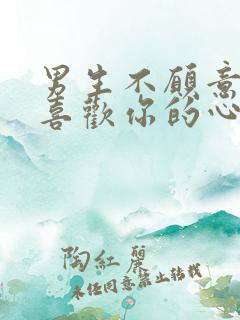 男生不願意
喜歡你的心
陶紅麗
未任同意禁止转载